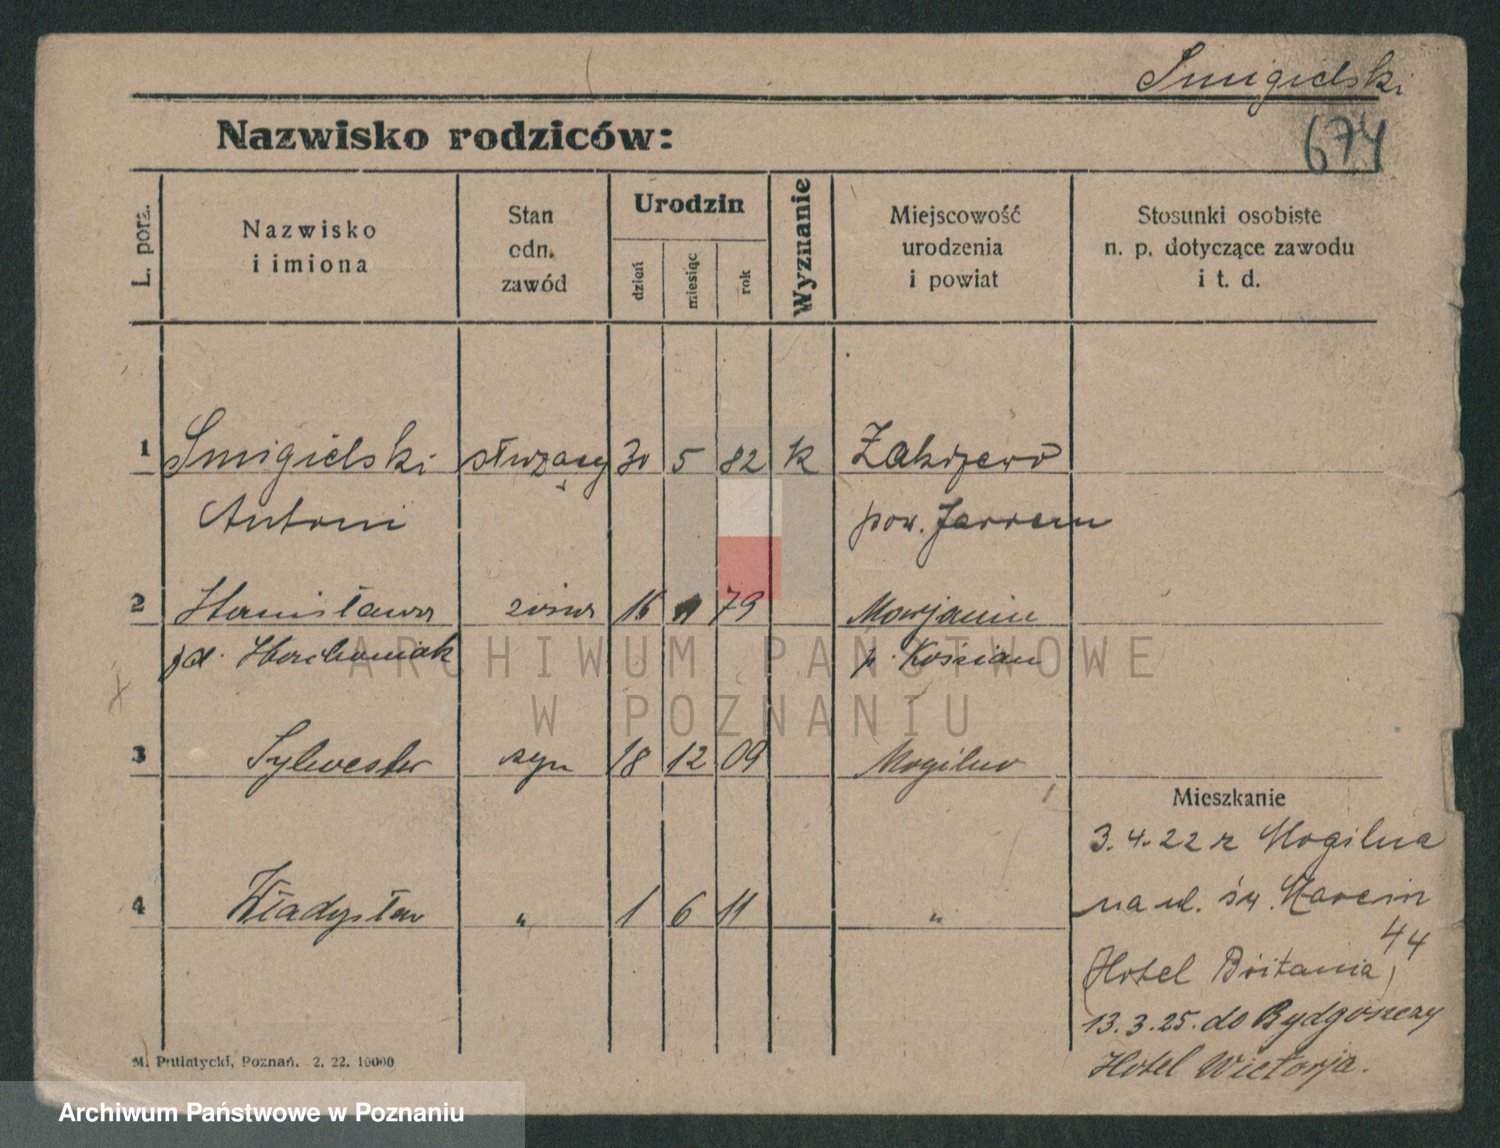 Smigielski
674
Nazwisko rodziców:
L. porz.
Nazwisko
i imiona
Stan
odn.
zawód
Urodzin
dzień
miesiąc
rok
Wyznanie
Miejscowość
urodzenia
i powiat
Stosunki osobiste
n. p. dotyczące zawodu
i t. d.
1 Smigielski służący 30 5 82 k Zakrzewo
Antoni pow.
2 Stanisława żona 16 11 79
p. Kościan
3 Sylwester syn 18 12 09 Mogilno
Mieszkanie
3.4.22 z Mogilna
4 Władysław " 1 6 11 "
na ul. św. Marcin
44
(Hotel Britania)
13.3.25. do Bydgoszczy
Hotel Wictorja.
M. Putiatycki, Poznań. 2. 22. 10000
ARCHIWUM PAŃSTWOWE
W POZNANIU
Archiwum Państwowe w Poznaniu